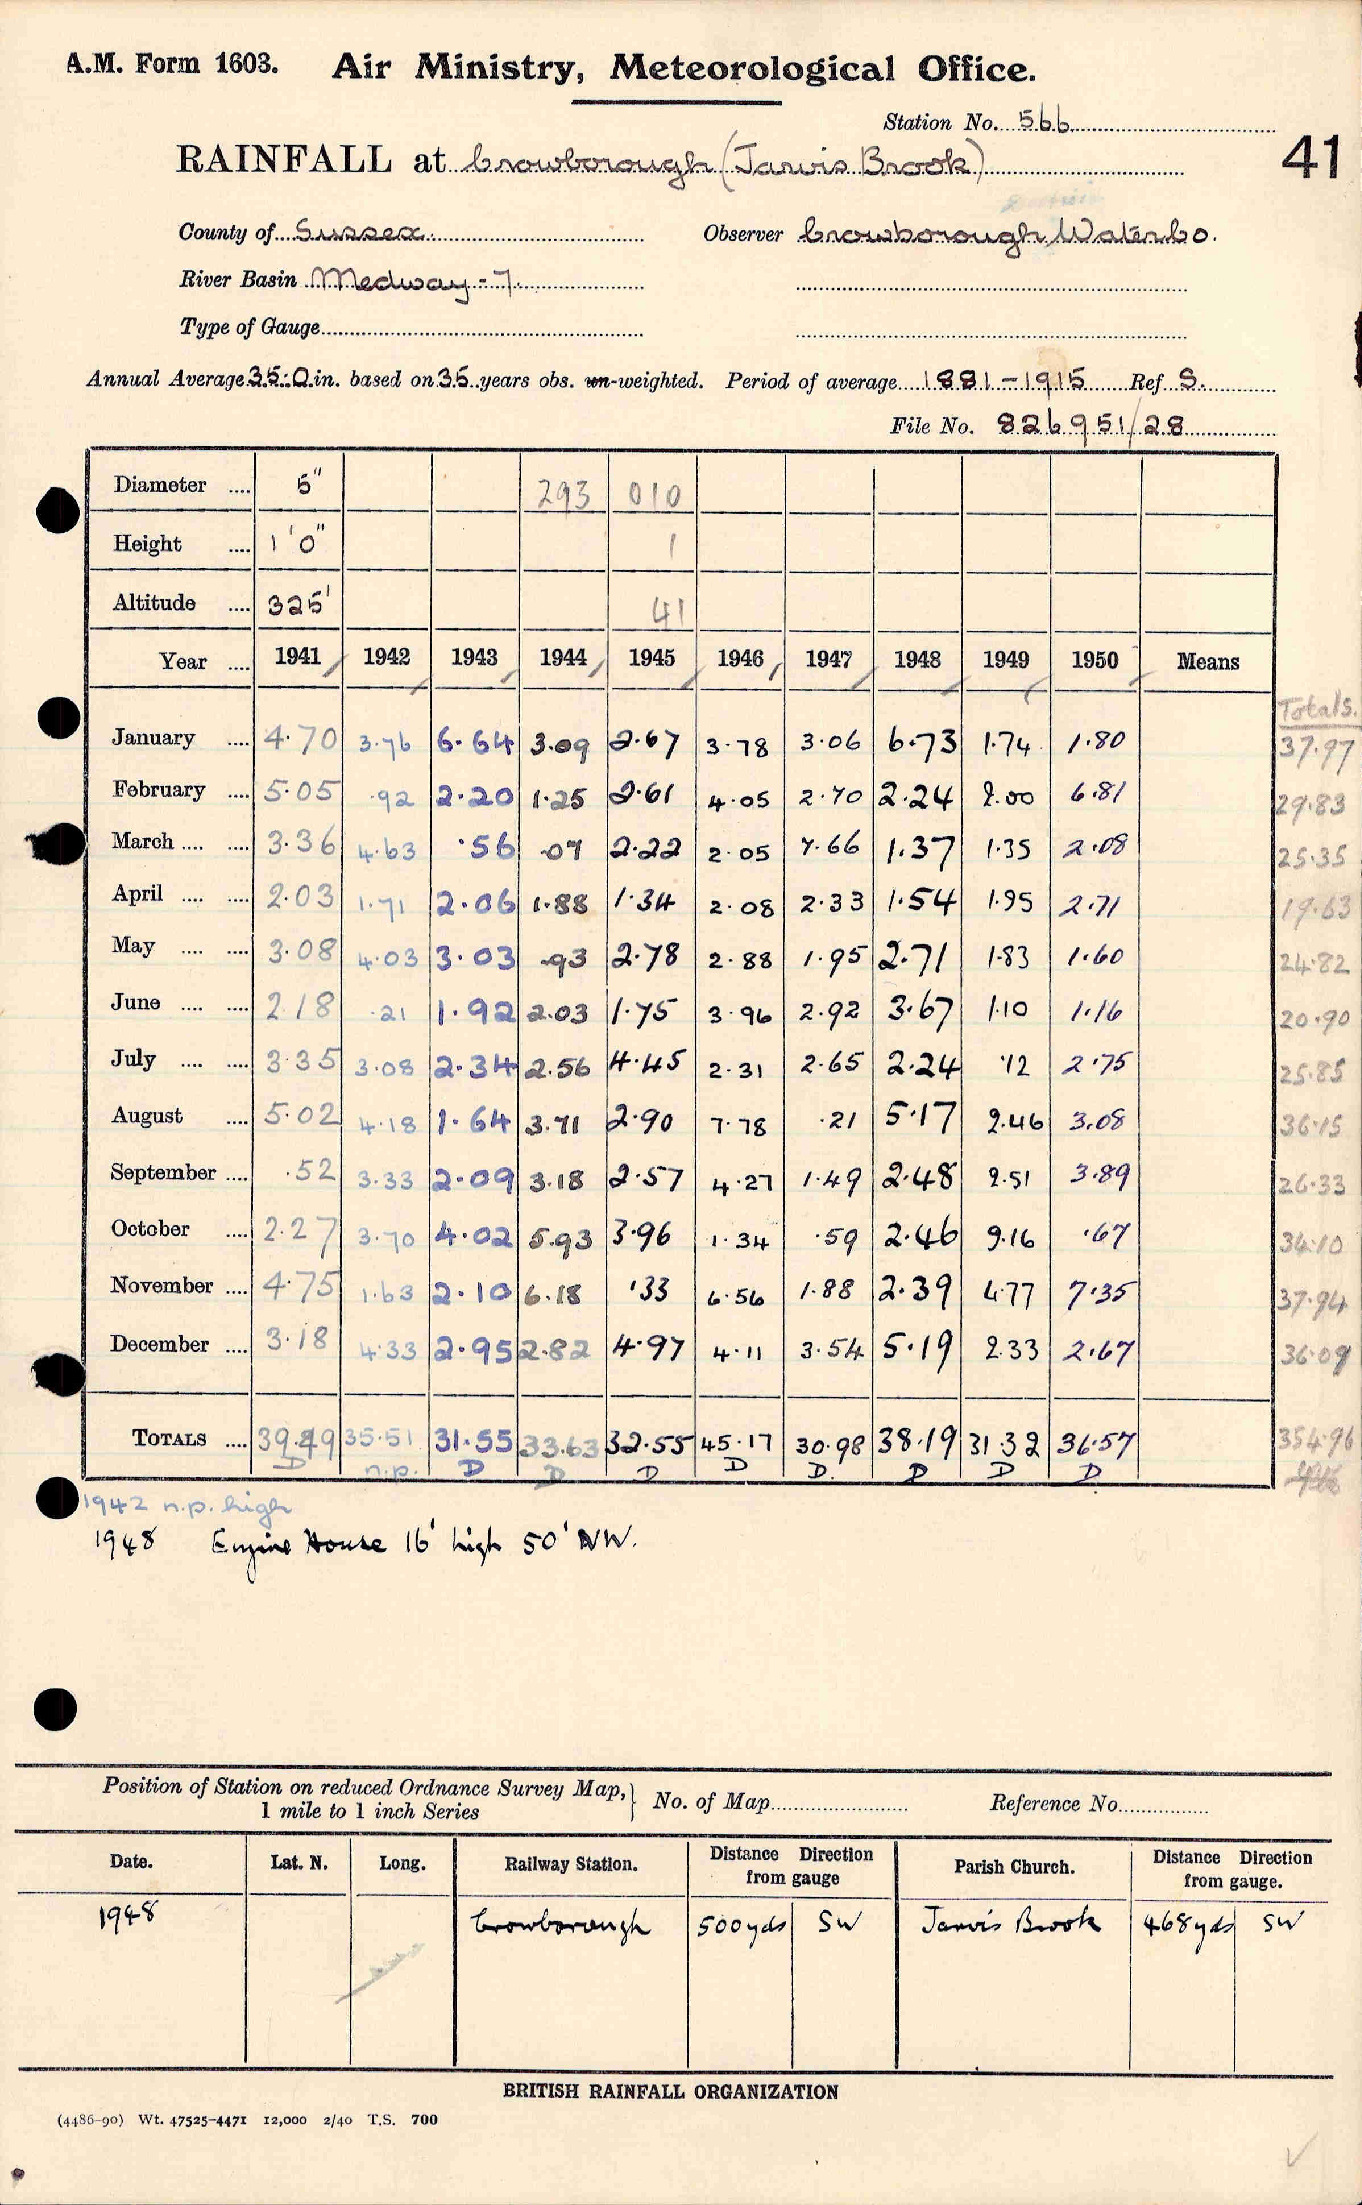 A.M. Form 1603. Air Ministry, Meteorological Office.
Station No. 566
41
RAINFALL at Crowborough (Jarvis Brook)
District
County of Sussex. Observer Crowborough Water Co.
River Basin Medway - 7.
Type of Gauge
Annual Average 35.0 in. based on 35 years obs. un-weighted. Period of average 1881-1915 Ref S.
File No. 826951/28
Diameter .... 5" 293 010
Height .... 1'0" 1
Altitude .... 325' 41
Year .... 1941 1942 1943 1944 1945 1946 1947 1948 1949 1950 Means
Totals.
January .... 4.70 3.76 6.64 3.09 2.67 3.78 3.06 6.73 1.74 1.80 37.97
February .... 5.05 .92 2.20 1.25 2.61 4.05 2.70 2.24 2.00 6.81 29.83
March .... .... 3.36 4.63 .56 .07 2.22 2.05 7.66 1.37 1.35 2.08 25.35
April .... .... 2.03 1.71 2.06 1.88 1.34 2.08 2.33 1.54 1.95 2.71 19.63
May .... .... 3.08 4.03 3.03 .93 2.78 2.88 1.95 2.71 1.83 1.60 24.82
June .... .... 2.18 .21 1.92 2.03 1.75 3.96 2.92 3.67 1.10 1.16 20.90
July .... .... 3.35 3.08 2.34 2.56 4.45 2.31 2.65 2.24 .12 2.75 25.85
August .... 5.02 4.18 1.64 3.71 2.90 7.78 .21 5.17 2.46 3.08 36.15
September .... .52 3.33 2.09 3.18 2.57 4.27 1.49 2.48 2.51 3.89 26.33
October .... 2.27 3.70 4.02 5.93 3.96 1.34 .59 2.46 9.16 .67 34.10
November .... 4.75 1.63 2.10 6.18 .33 6.56 1.88 2.39 4.77 7.35 37.94
December .... 3.18 4.33 2.95 2.82 4.97 4.11 3.54 5.19 2.33 2.67 36.09
TOTALS .... 39.49 35.51 31.55 33.63 32.55 45.17 30.98 38.19 31.32 36.57 354.96
D n.p. D D D D D. D D D
1942 n.p. high
1948 Engine House 16' high 50' NW.
Position of Station on reduced Ordnance Survey Map, 1 mile to 1 inch Series } No. of Map Reference No.
Date. Lat. N. Long. Railway Station. Distance Direction from gauge Parish Church. Distance Direction from gauge.
1948 Crowborough 500yds SW Jarvis Brook 468yds SW
BRITISH RAINFALL ORGANIZATION
(4486-90) Wt. 47525-4471 12,000 2/40 T.S. 700